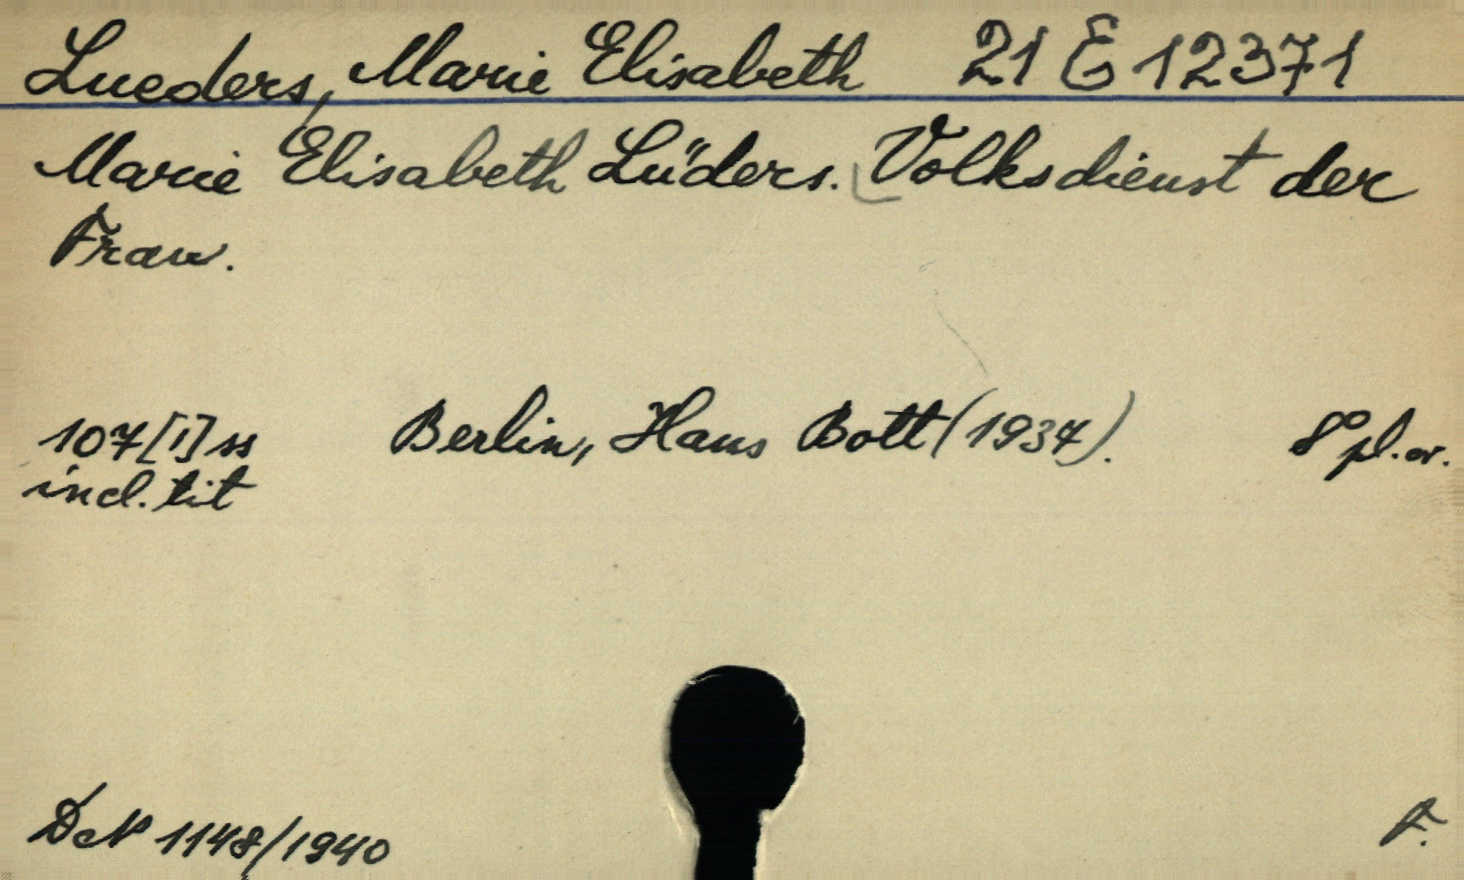 Lueders, Marie Elisabeth 21 E 12371
Marie Elisabeth Lüders. Volksdienst der
Frau.
107[1] ss Berlin, Hans Bott (1937). 8° pl. or.
incl. tit
1148/1940 F.